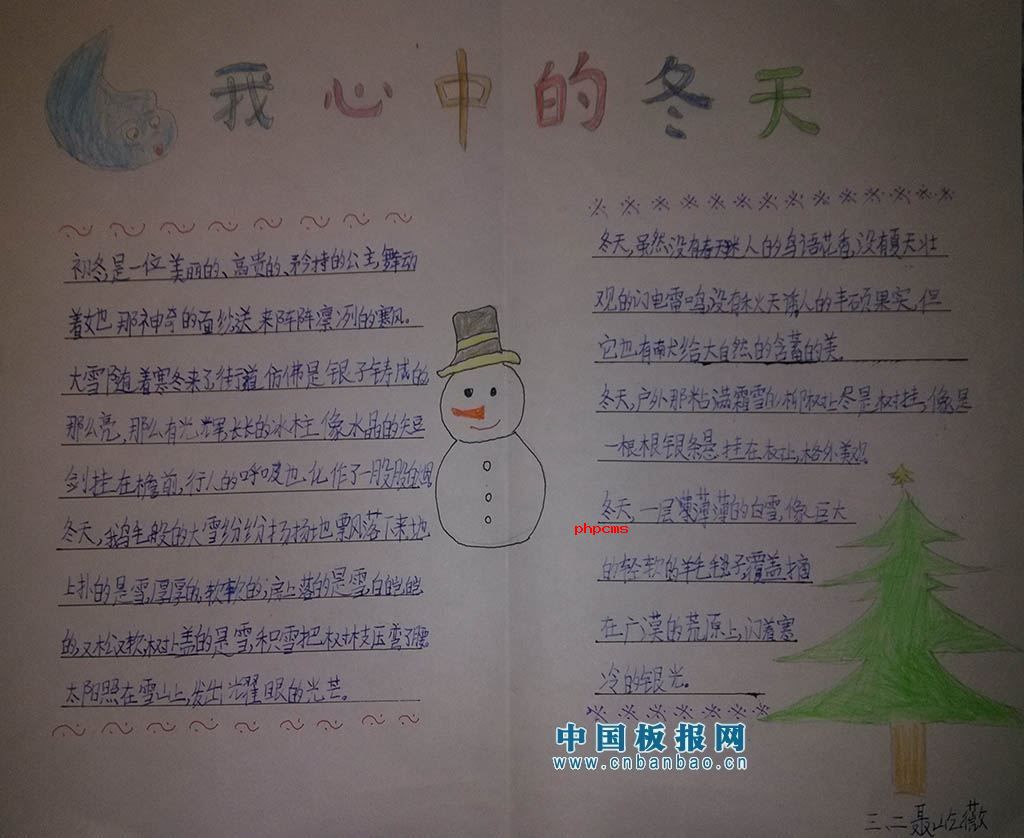 我心中的冬天
初冬,是一位美丽的、高贵的、矜持的公主,舞动
着她那神奇的面纱,送来阵阵凛冽的寒风。
大雪随着寒冬来了,街道仿佛是银子铸成的,
那么亮,那么有光,长长的冰柱像水晶的短
剑挂在檐前,行人的呼吸也化作了一股股白烟
冬天,鹅毛般的大雪纷纷扬扬地飘风落下来,地
上扑的是雪,厚厚的,软软的,房上落的是雪,白皑皑
的,又松又软,树上盖的是雪,积雪把树枝压弯了腰
太阳照在雪山上,发出耀眼的光芒。
冬天,虽然没有春天迷人的鸟语花香,没有夏天壮
观的闪电雷鸣,没有秋天诱人的丰硕果实,但
它也有献给大自然的含蓄的美。
冬天,户外那粘满霜雪的柳树上尽是树挂,像是
一根根银条悬挂在树上,格外美观
冬天,一层薄薄的白雪,像巨大
的轻软的羊毛毯子,覆盖摘
在广漠的荒原上,闪着寒
冷的银光。
phpcms
中国板报网
www.cnbanbao.cn
三、二聂屹薇